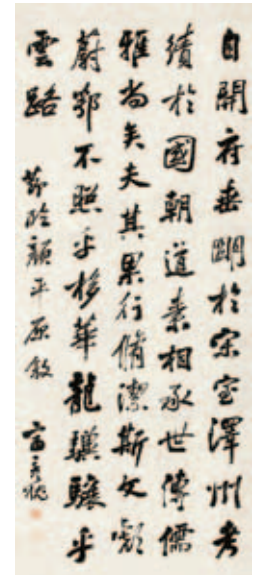 自開府垂明於宋室澤州考
績於國朝道素相承世傳儒
雅尚矣夫其果行脩潔斯文彪
蔚鄂不照乎移華龍驥驤乎
雲路
節臨顏平原敘